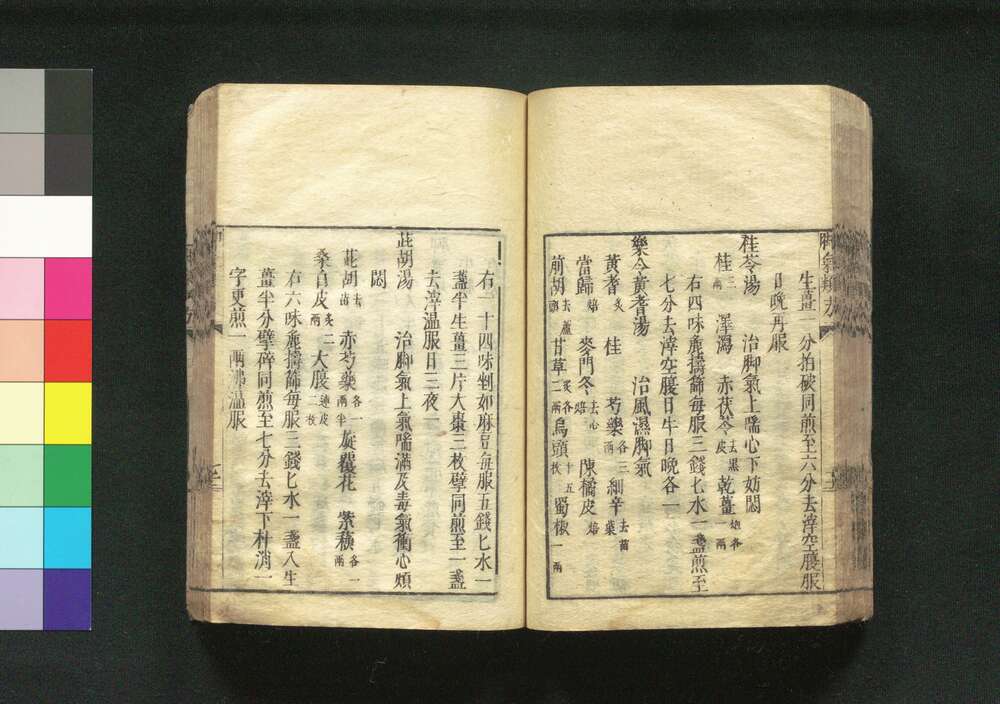 生薑一分拍破同煎至六分去滓空腹服
日晚再服
桂苓湯 治脚氣上喘心下妨悶
桂三兩 澤瀉 赤茯苓去黑皮 乾薑炮各一兩
右四味麄擣篩每服三錢匕水一盞煎至
七分去滓空腹日午日晚各一
樂令黃耆湯 治風濕脚氣
黃耆炙 桂 芍藥各三兩 細辛去苗葉
當歸焙 麥門冬去心焙 陳橘皮焙
前胡去蘆頭 甘草炙各二兩 烏頭十五枚 蜀椒一兩
右一十四味剉如麻豆每服五錢匕水一
盞半生薑三片大棗三枚擘同煎至一盞
去滓溫服日三夜一
茈胡湯 治脚氣上氣喘滿及毒氣衝心煩
悶
茈胡去苗 赤芍藥各一兩半 旋覆花 紫蘇各一兩
桑白皮炙二兩 大腹連皮二枚
右六味麄擣篩每服三錢匕水一盞入生
薑半分擘碎同煎至七分去滓下朴消一
字更煎一兩沸溫服